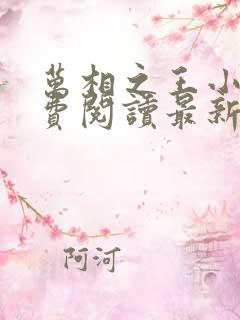 萬相之王小
費閱讀最新
阿河